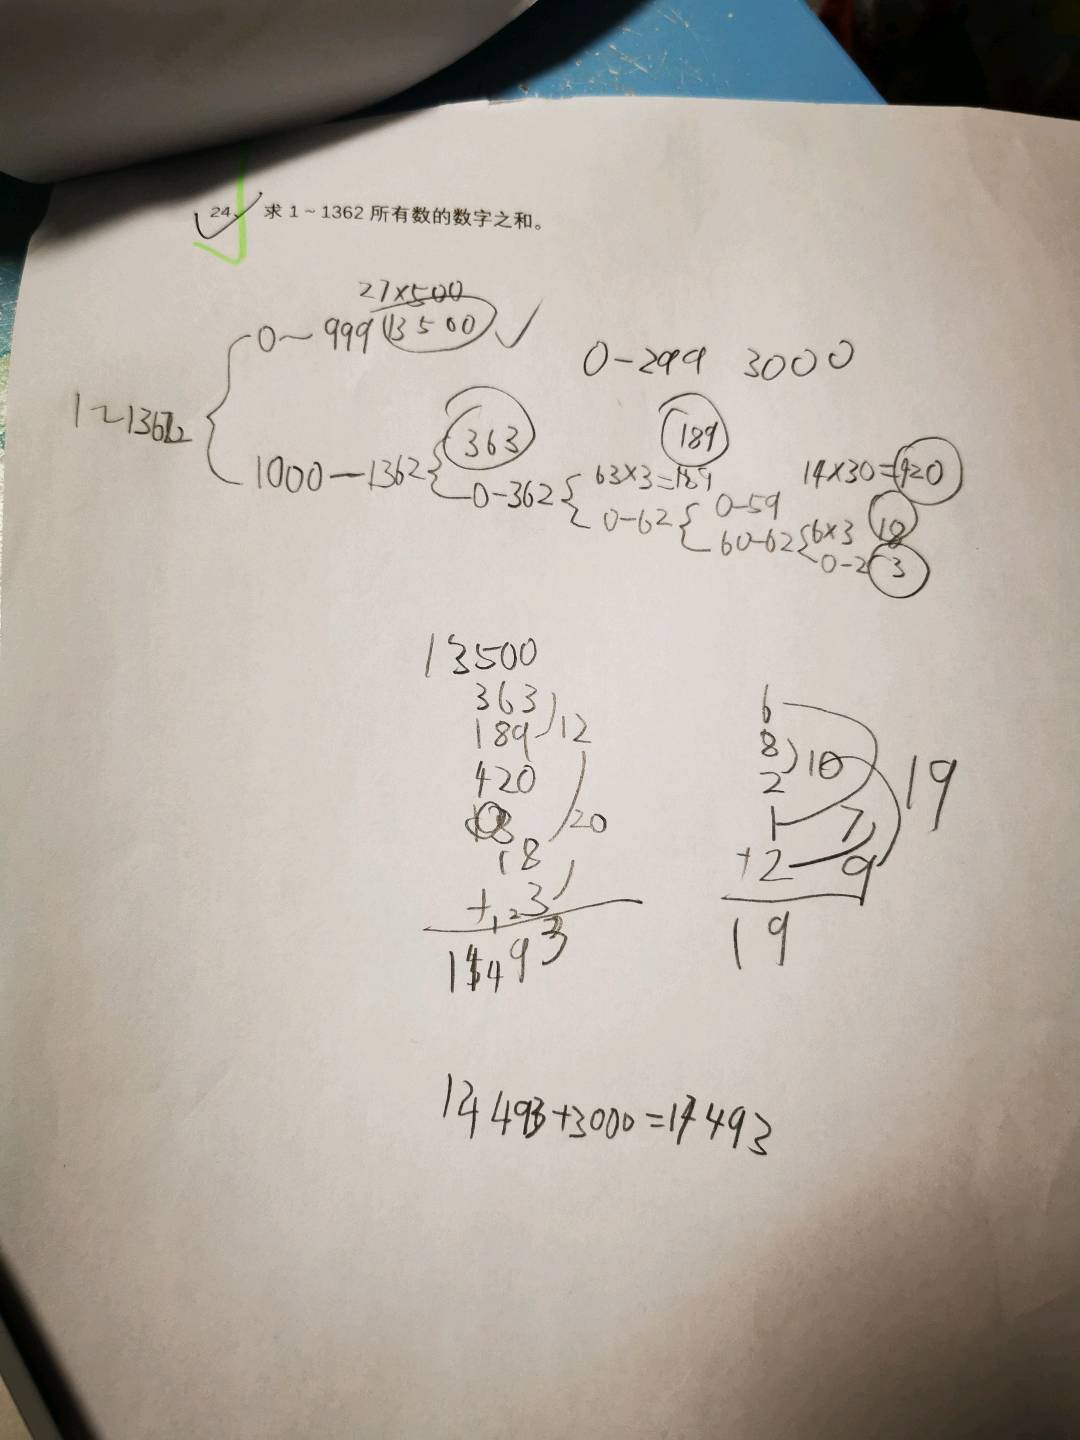 24. 求 1 ~ 1362 所有数的数字之和。
27×500
0~999 13500
0-299 3000
1~1362
363
189
1000—1362
0-362
63×3=189
14×30=420
0-62
0-59
60-62
6×3 18
0-2 3
13500
363
189 12
420
20
18
+ 3
14493
6
8 10
2
19
1 7
+2 9
19
14493+3000=17493